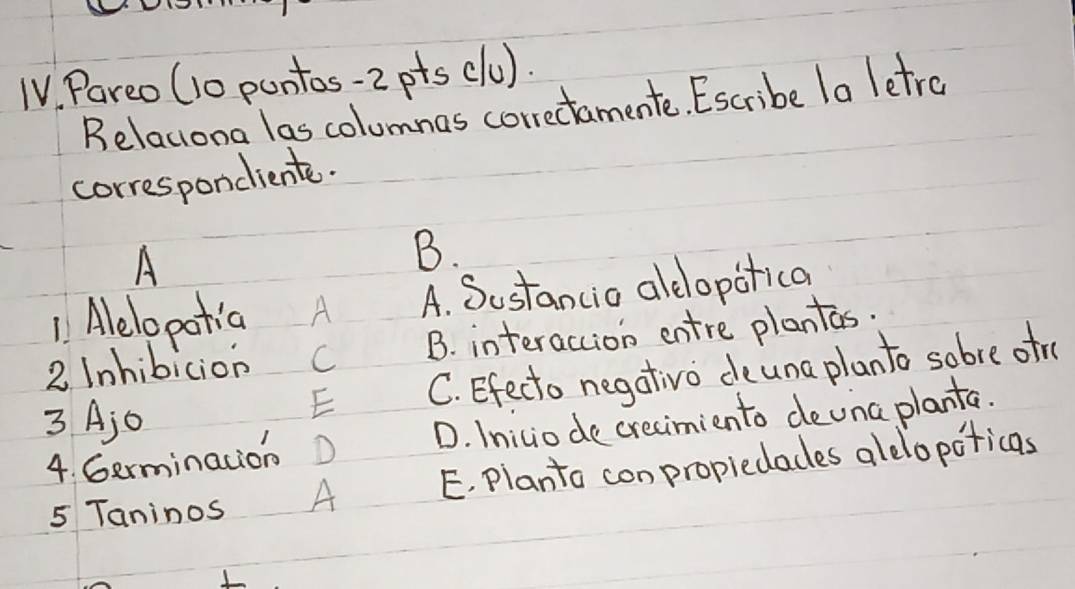 IV. Pareo (10 puntos - 2 pts c/u).
Relaciona las columnas correctamente. Escribe la letra
correspondiente.
A B.
1. Alelopatía A A. Sustancia alelopática
2 Inhibición C B. interacción entre plantas.
3 Ajo E C. Efecto negativo de una planta sobre otra
4. Germinación D D. Inicio de crecimiento de una planta.
5 Taninos A E. Planta con propiedades alelopáticas